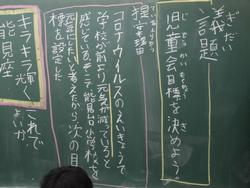 ぎだい
議題
じどうかいもくひょう き
児童会目標を決めよう。
提案理由
コロナウイルスのえいきょうで、
学校が前より元気が減っていると
感じている。そこで、能見台小学校を
元気にしたいと考えたから次の目
標を設定した。
キラキラ輝く
能見座
これで
よいか